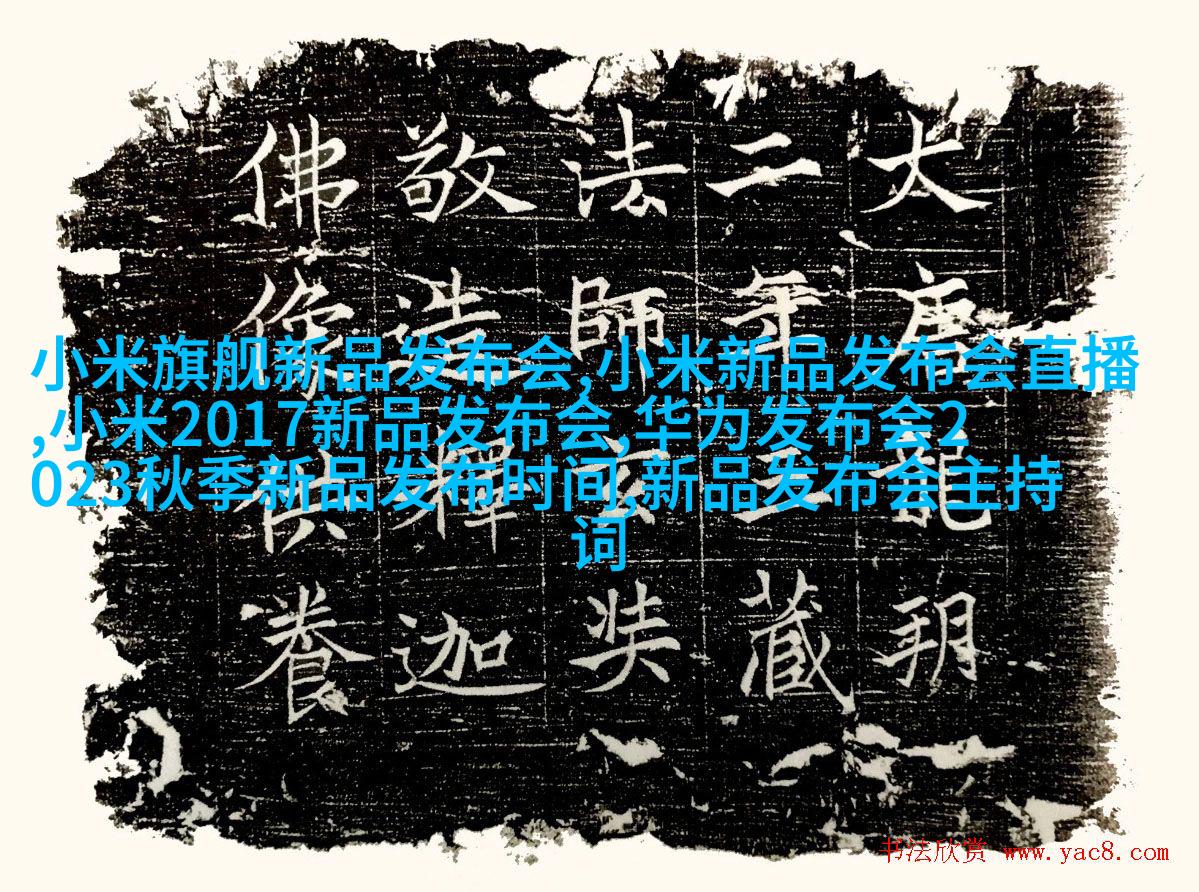 大唐龍朔
二年三藏
法師玄奘
敬造釋迦
佛像供養
小米旗舰新品发布会,小米新品发布会直播
,小米2017新品发布会,华为发布会2
023秋季新品发布时间,新品发布会主持
词
书法欣赏 www.yac8.com